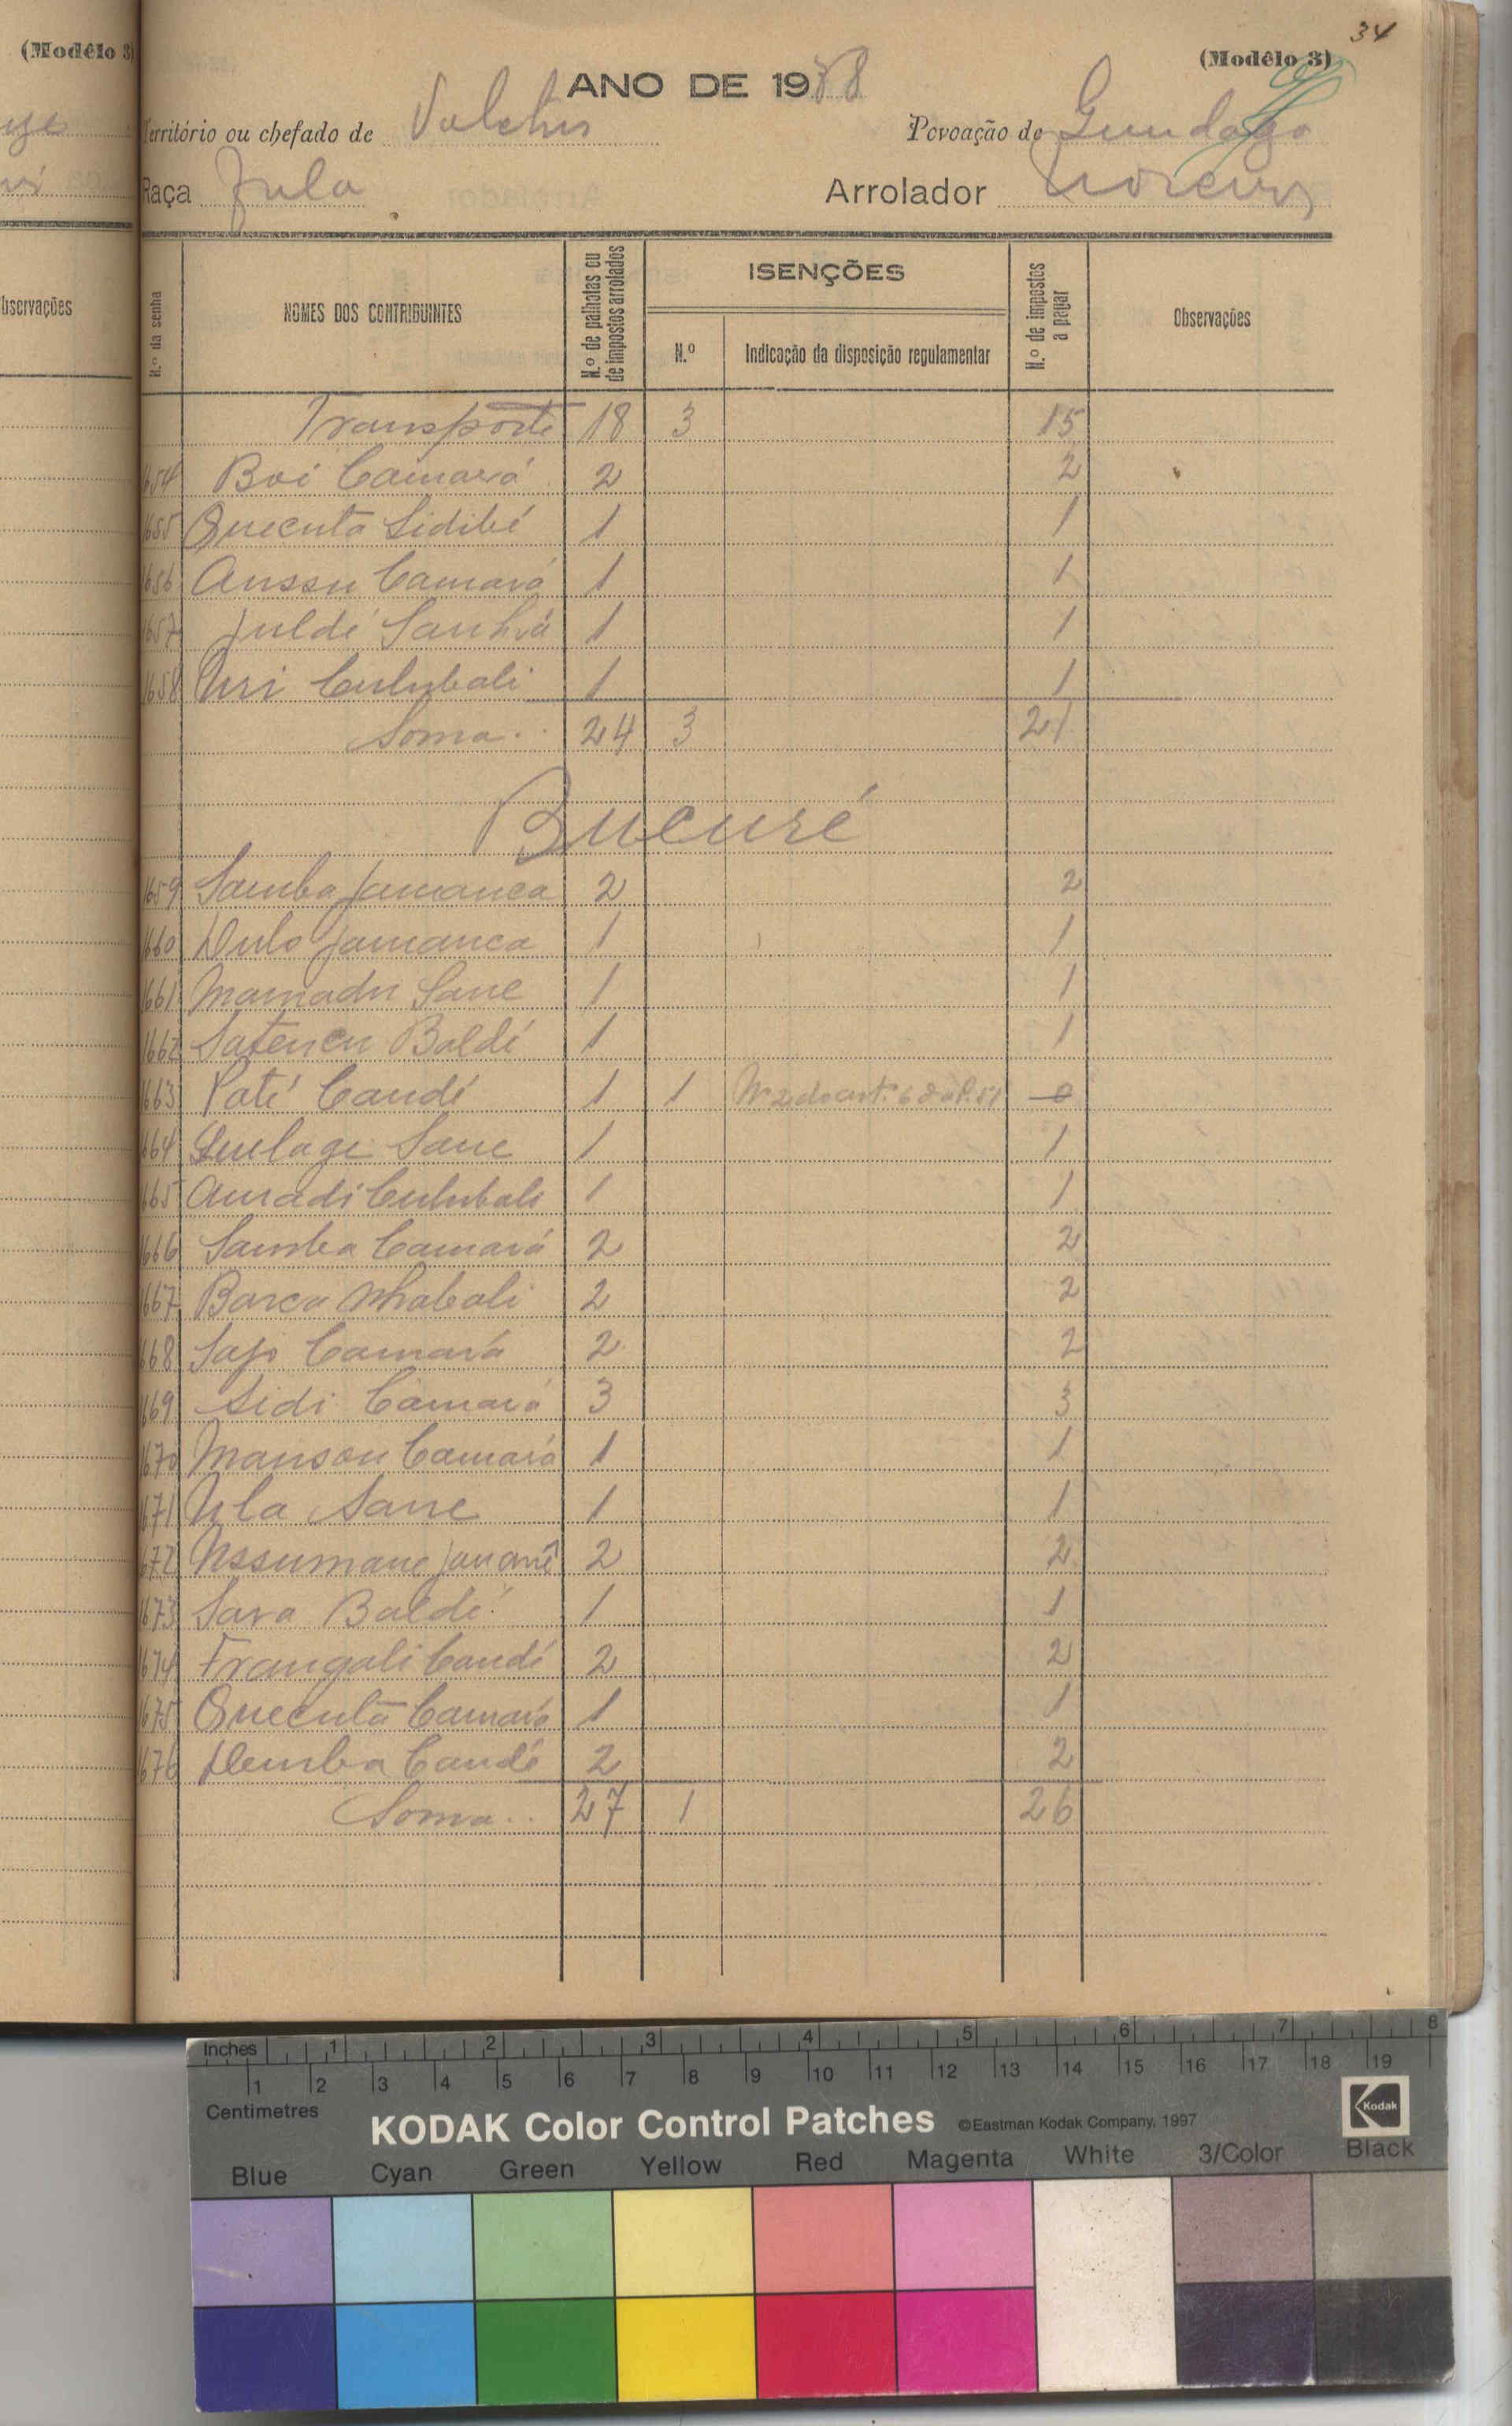 (Modêlo 3)
34
(Modêlo 3)
ANO DE 19
Território ou chefado de
Povoação de Gundago
Raça Fula
Arrolador Moreira
Observações
N.º da senha
NOMES DOS CONTRIBUINTES
N.º de palhotas ou de impostos arrolados
ISENÇÕES
N.º
Indicação da disposição regulamentar
N.º de impostos a pagar
Observações
Transporte 18 3 15
1654 Boi Camará 2 2
1655 Quecuta Sidibé 1 1
1656 Anssu Camará 1 1
1657 Juldé Sanhá 1 1
1658 Uri Culubali 1 1
Soma.. 24 3 21
Bucuré
1659 Samba Jamanca 2 2
1660 Dulo Jamanca 1 1
1661 Mamadu Sane 1 1
1662 Satencu Baldé 1 1
1663 Paté Candé 1 1 Nº 2 do artº 6 0
1664 Quelage Sane 1 1
1665 Amadi Culubali 1 1
1666 Samba Camará 2 2
1667 Barca Nhabali 2 2
1668 Sajo Camará 2 2
1669 Sidi Camará 3 3
1670 Manson Camará 1 1
1671 Ula Sane 1 1
1672 Ussumane Jananê 2 2
1673 Sara Baldé 1 1
1674 Frangali Candé 2 2
1675 Quecuta Camará 1 1
1676 Demba Candé 2 2
Soma.. 27 1 26
Inches 1 2 3 4 5 6 7 8
1 2 3 4 5 6 7 8 9 10 11 12 13 14 15 16 17 18 19
Centimetres
KODAK Color Control Patches ©Eastman Kodak Company, 1997 Kodak
Blue Cyan Green Yellow Red Magenta White 3/Color Black